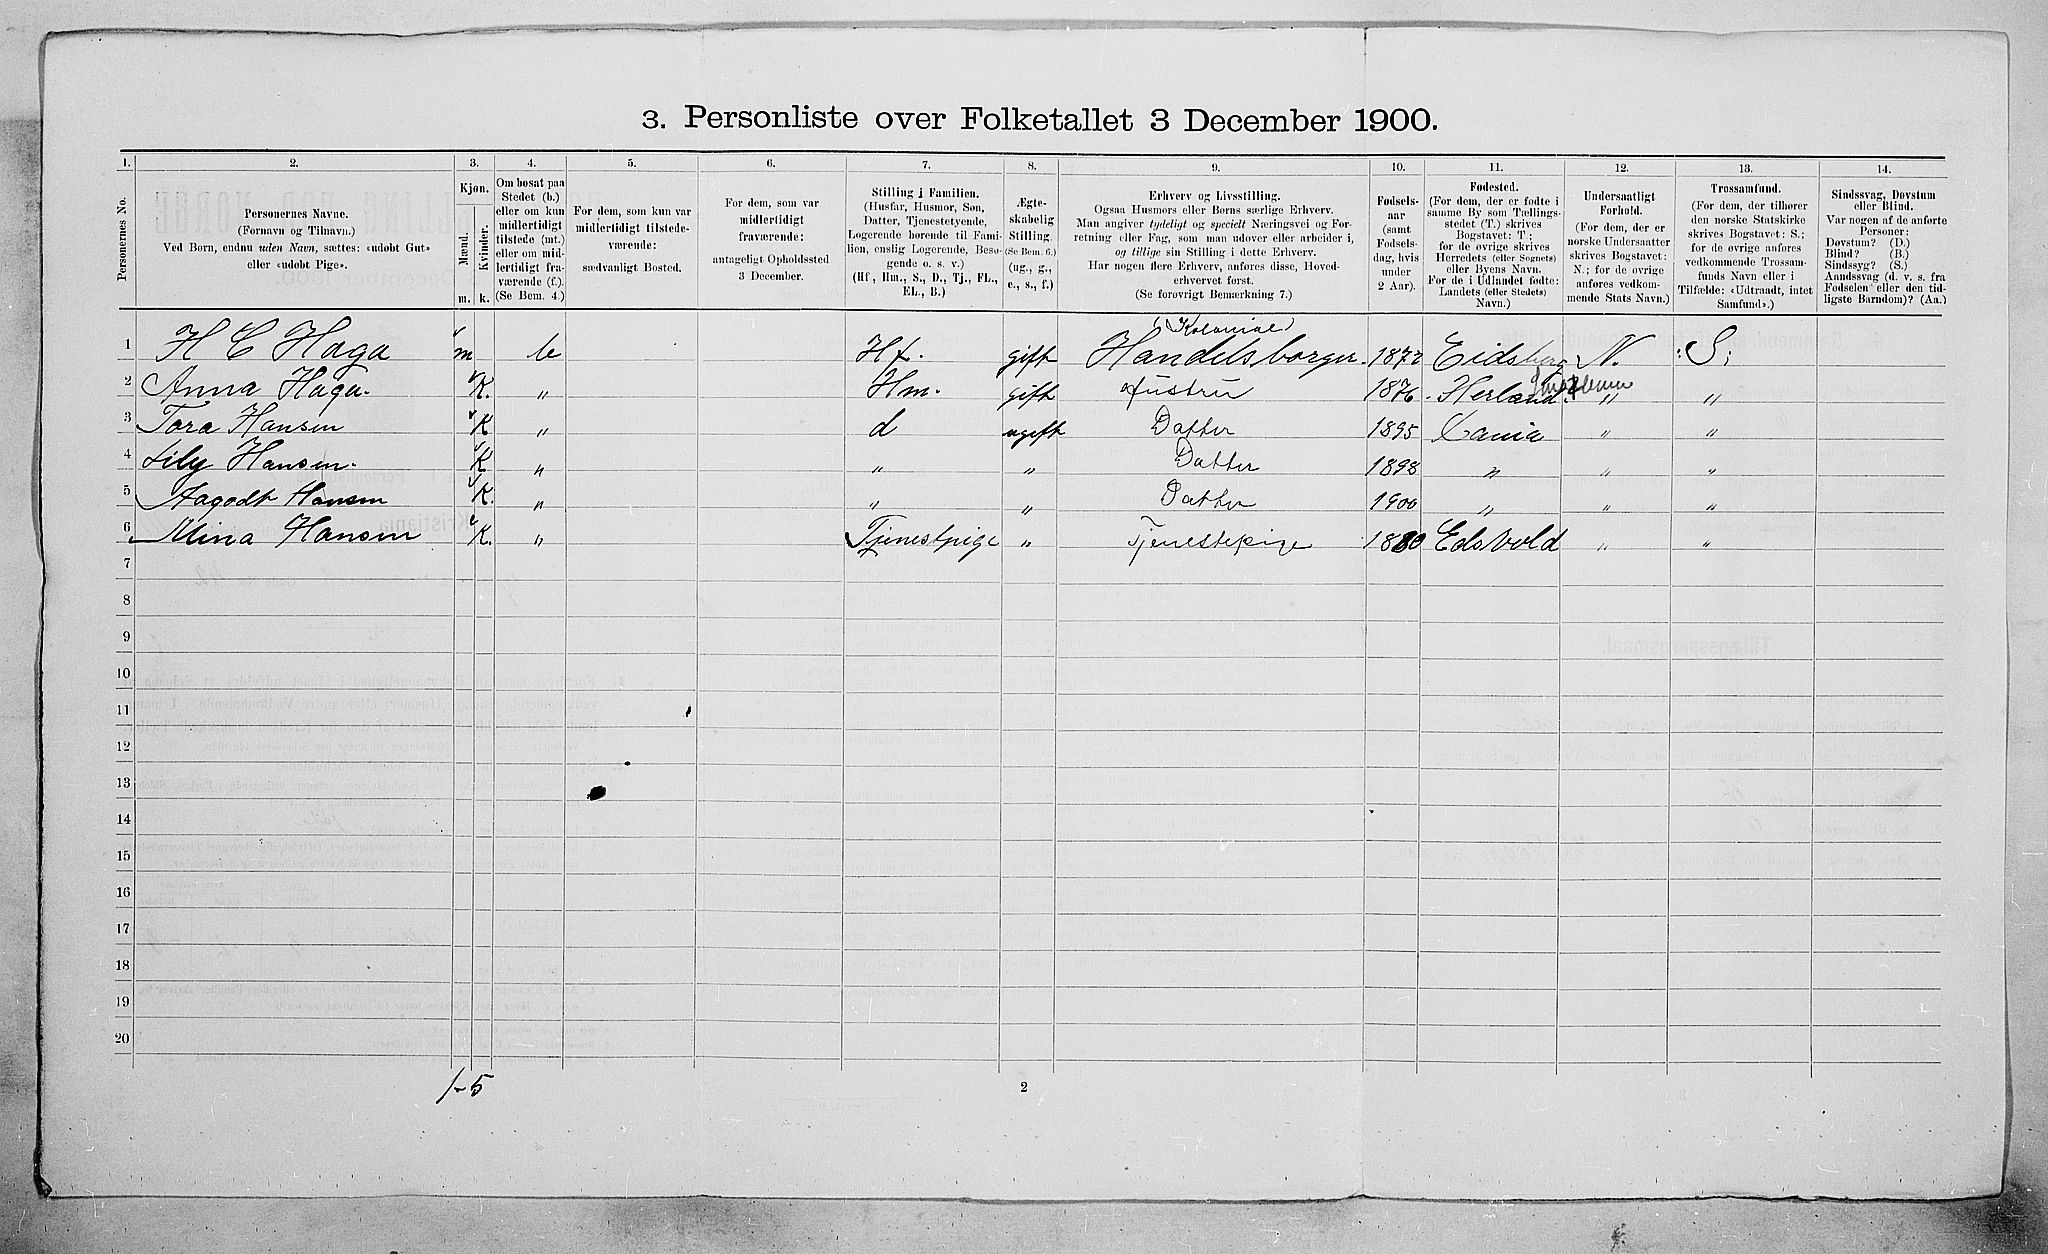 3. Personliste over Folketallet 3 December 1900.
1. 2. 3. 4. 5. 6. 7. 8. 9. 10. 11. 12. 13. 14.
Personernes No.
Personernes Navne.
(Fornavn og Tilnavn.)
Ved Børn, endnu uden Navn, sættes: «udøbt Gut»
eller «udøbt Pige».
Kjøn.
Mænd. Kvinder.
m. k.
Om bosat paa
Stedet (b.)
eller om kun
midlertidigt
tilstede (mt.)
eller om mid-
lertidigt fra-
værende (f.).
(Se Bem. 4.)
For dem, som kun var
midlertidigt tilstede-
værende:
sædvanligt Bosted.
For dem, som var
midlertidigt
fraværende:
antageligt Opholdssted
3 December.
Stilling i Familien.
(Husfar, Husmor, Søn,
Datter, Tjenestetyende,
Logerende hørende til Fami-
lien, enslig Logerende, Besø-
gende o. s. v.)
(Hf, Hm., S., D., Tj., FL.,
EL., B.)
Ægte-
skabelig
Stilling.
(Se Bem. 6.)
(ug., g.,
e., s., f.)
Erhverv og Livsstilling.
Ogsaa Husmors eller Børns særlige Erhverv.
Man angiver tydeligt og specielt Næringsvei og For-
retning eller Fag, som man udøver eller arbeider i,
og tillige sin Stilling i dette Erhverv.
Har nogen flere Erhverv, anføres disse, Hoved-
erhvervet først.
(Se forøvrigt Bemærkning 7.)
Fødsels-
aar
(samt
Fødsels-
dag, hvis
under
2 Aar).
Fødested.
(For dem, der er fødte i
samme By som Tællings-
stedet (T.) skrives
Bogstavet: T;
for de øvrige skrives
Herredets (eller Sognets)
eller Byens Navn.
For de i Udlandet fødte:
Landets (eller Stedets)
Navn.)
Undersaatligt
Forhold.
(For dem, der er
norske Undersaatter
skrives Bogstavet:
N.; for de øvrige
anføres vedkom-
mende Stats Navn.)
Trossamfund.
(For dem, der tilhører
den norske Statskirke
skrives Bogstavet: S.;
for de øvrige anføres
vedkommende Trossam-
funds Navn eller i
Tilfælde: «Udtraadt, intet
Samfund».)
Sindssvag, Døvstum
eller Blind.
Var nogen af de anførte
Personer:
Døvstum? (D.)
Blind? (B.)
Sindssyg? (S.)
Aandssvag (d. v. s. fra
Fødselen eller den tid-
ligste Barndom)? (Aa.)
(Kolonial)
1 H C Haga m b Hf. gift Handelsborger 1872 Eidsberg N. S.
Smaalenene
2 Anna Haga. K. " Hm. gift Hustru 1876 Herland " "
3 Tora Hansen K " d ugift Datter 1895 Xania " "
4 Lily Hansen. K " " " Datter 1898 " " "
5 Aagodt Hansen K. " " " Datter 1900 " " "
6 Mina Hansen K. " Tjenestpige " Tjenestepige 1880 Edsvold " "
7
8
9
10
11
12
13
14
15
16
17
18
19
20
1-5
2